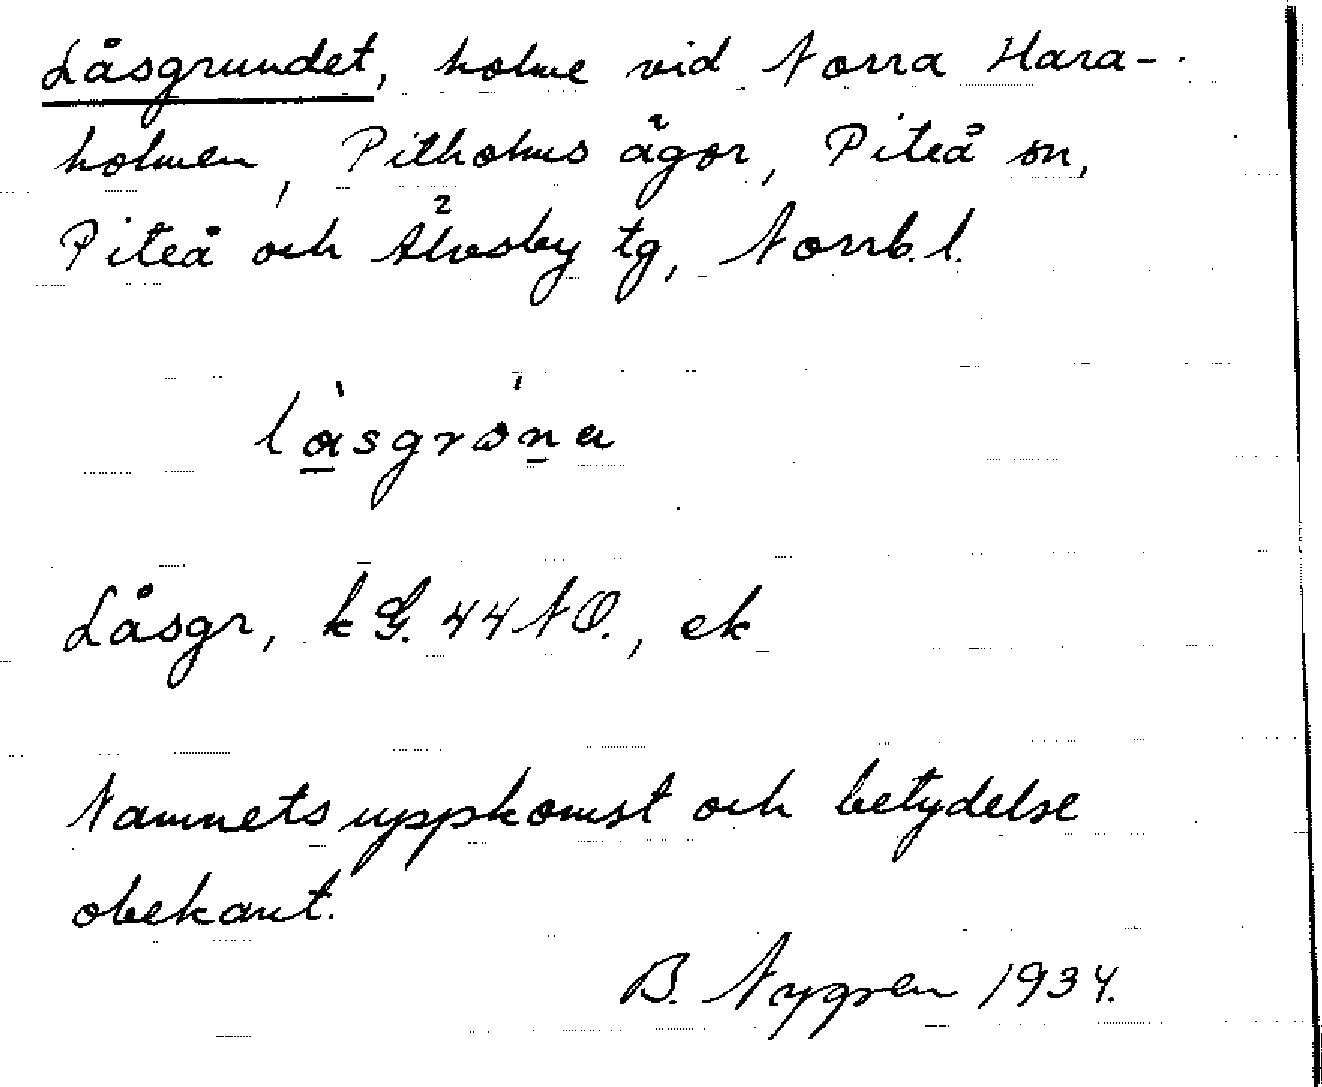 Låsgrundet, holme vid Norra Hara-
holmen, Pitholms ägor, Piteå sn,
Piteå och Älvsby tg, Norrb. l.
Låsgr, kG. 44 NO., ek
Namnets uppkomst och betydelse
obekant.
B. Nygren 1934.